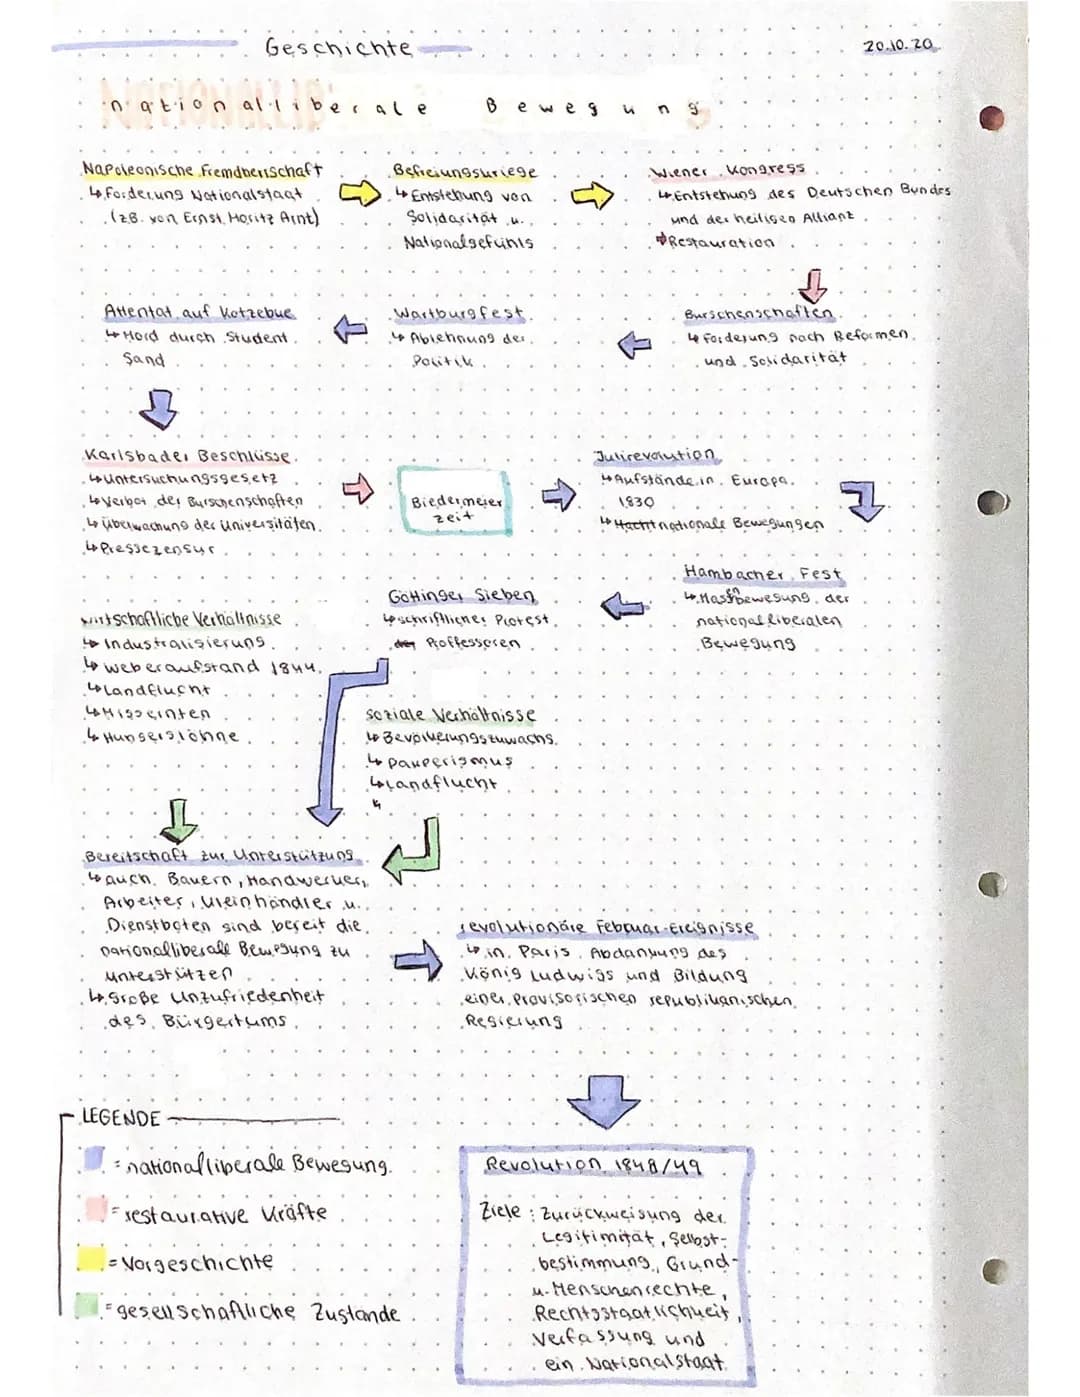 Geschichte
20.10.20
nationalliberale Bewegung
Napoleonische Fremdherrschaft
↳ Forderung Nationalstaat
(z.B. von Ernst Moritz Arnt)
Befreiungskriege
↳ Entstehung von
Solidarität u.
Nationalgefühls
Wiener Kongress
↳ Entstehung des Deutschen Bundes
und der heiligen Allianz
→ Restauration
Burschenschaften
↳ Forderung nach Reformen
und Solidarität
Wartburgfest
↳ Ablehnung der
Politik
Attentat auf Kotzebue
↳ Mord durch Student
Sand
Karlsbader Beschlüsse
↳ Untersuchungsgesetz
↳ Verbot der Burschenschaften
↳ Überwachung der Universitäten
↳ Pressezensur
Biedermeier
zeit
Julirevolution
↳ Aufstände in Europa
1830
↳ Macht nationale Bewegungen
Hambacher Fest
↳ Massenbewegung der
nationalliberalen
Bewegung
Göttinger Sieben
↳ schriftlicher Protest
der Proffessoren
wirtschaftliche Verhältnisse
↳ Industralisierung
↳ Weberaufstand 1844
↳ Landflucht
↳ Missernten
↳ Hungerslöhne
soziale Verhältnisse
↳ Bevölkerungszuwachs
↳ Pauperismus
↳ Landflucht
↳
Bereitschaft zur Unterstützung
↳ auch Bauern, Handwerker,
Arbeiter, Kleinhändler u.
Dienstboten sind bereit die
nationalliberale Bewegung zu
unterstützen
↳ große Unzufriedenheit
des Bürgertums
revolutionäre Februar-Ereignisse
↳ in Paris Abdankung des
König Ludwigs und Bildung
einer provisorischen republikanischen
Regierung
LEGENDE
= nationalliberale Bewegung
= restaurative Kräfte
= Vorgeschichte
= gesellschaftliche Zustände
Revolution 1848/49
Ziele: Zurückweisung der
Legitimität, Selbst-
bestimmung, Grund-
u. Menschenrechte,
Rechtsstaatlichkeit,
Verfassung und
ein Nationalstaat